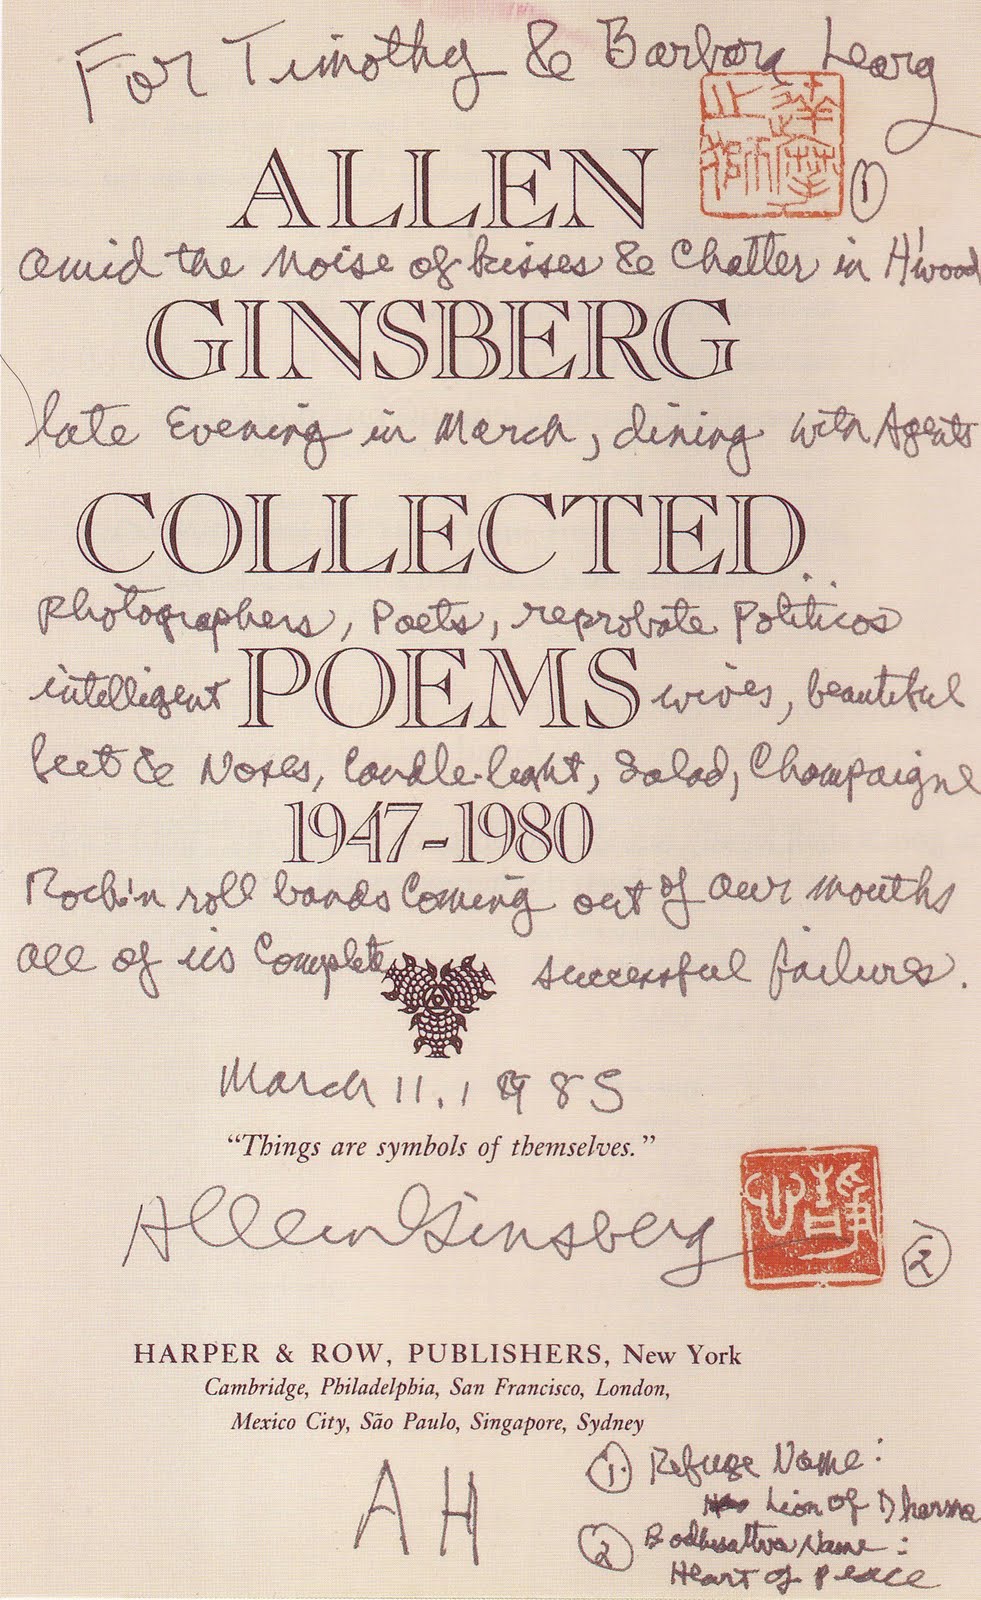 For Timothy & Barbara Leary
達摩
之獅
①
ALLEN
amid the noise of kisses & Chatter in H'wood
GINSBERG
late Evening in March, dining with Agents
COLLECTED
photographers, Poets, reprobate Politicos
intelligent POEMS wives, beautiful
feet & Noses, Candle-light, Salad, Champaigne
1947-1980
Rock'n roll bands Coming out of our mouths
all of us Complete successful failures.
March 11, 1985
“Things are symbols of themselves.”
Allen Ginsberg
②
HARPER & ROW, PUBLISHERS, New York
Cambridge, Philadelphia, San Francisco, London,
Mexico City, São Paulo, Singapore, Sydney
AH
① Refuge Name:
Lion of Dharma
② Bodhisattva Name:
Heart of Peace